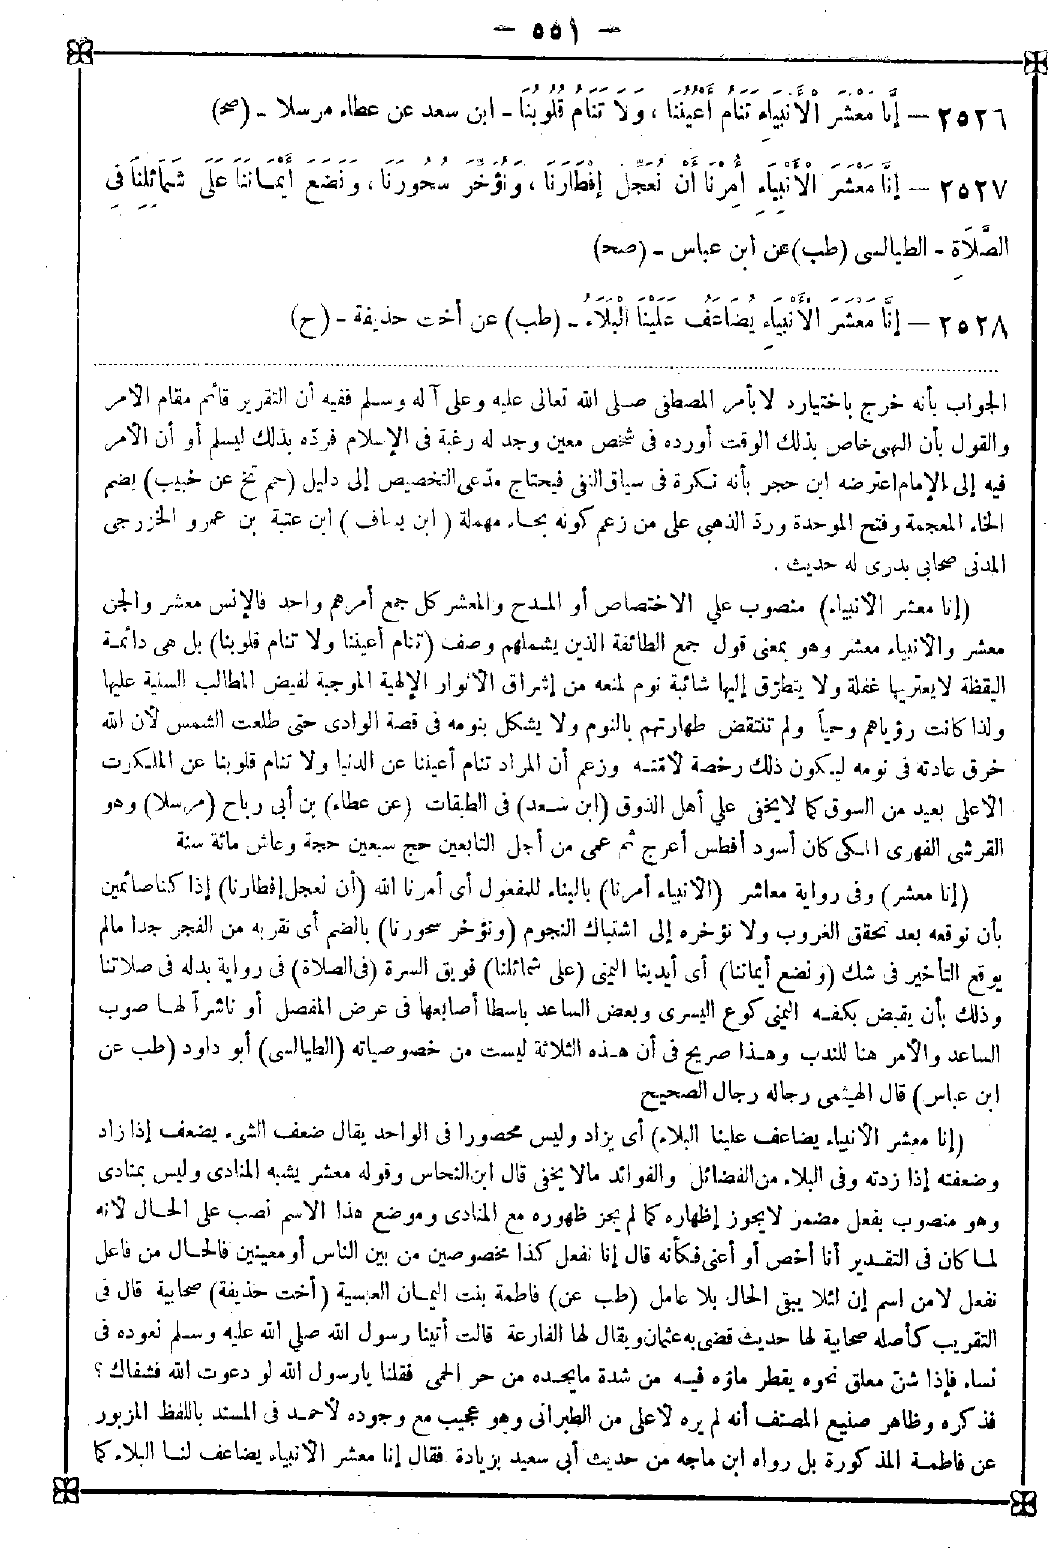 — ٥٥١ —
٢٥٢٦ — إِنَّا مَعْشَرَ الْأَنْبِيَاءِ تَنَامُ أَعْيُنُنَا ، وَلَا تَنَامُ قُلُوبُنَا - ابن سعد عن عطاء مرسلا - (صح)
٢٥٢٧ — إِنَّا مَعْشَرَ الْأَنْبِيَاءِ أُمِرْنَا أَنْ نُعَجِّلَ إِفْطَارَنَا ، وَنُؤَخِّرَ سُحُورَنَا ، وَنَضَعَ أَيْمَانَنَا عَلَى شَمَائِلِنَا فِي
الصَّلَاةِ - الطيالسى (طب) عن ابن عباس - (صح)
٢٥٢٨ — إِنَّا مَعْشَرَ الْأَنْبِيَاءِ يُضَاعَفُ عَلَيْنَا الْبَلَاءُ - (طب) عن أخت حذيفة - (ح)
الجواب بأنه خرج باختياره لا بأمر المصطفى صلى الله تعالى عليه وعلى آله وسلم ففيه أن التقرير قائم مقام الأمر
والقول بأن النهى خاص بذلك الوقت أورده فى شخص معين وجد له رغبة فى الإسلام فردّه بذلك ليسلم أو أن الأمر
فيه إلى الإمام اعترضه ابن حجر بأنه نكرة فى سياق النفى فيحتاج مدّعى التخصيص إلى دليل (حم تخ عن خبيب) بضم
الخاء المعجمة وفتح الموحدة ورد الذهبى على من زعم كونه بحاء مهملة (ابن يساف) ابن عتبة بن عمرو الخزرجى
المدنى صحابى بدرى له حديث .
(إنا معشر الأنبياء) منصوب على الاختصاص أو المدح والمعشر كل جمع أمرهم واحد فالإنس معشر والجن
معشر والأنبياء معشر وهو بمعنى قول جمع الطائفة الذين يشملهم وصف (تنام أعيننا ولا تنام قلوبنا) بل هى دائمة
اليقظة لا يعتريها غفلة ولا يتطرّق إليها شائبة نوم لمنعه من إشراق الأنوار الإلهية الموجبة لفيض المطالب السنية عليها
ولذا كانت رؤياهم وحياً ولم تنتقض طهارتهم بالنوم ولا يشكل بنومه فى قصة الوادى حتى طلعت الشمس لأن الله
خرق عادته فى نومه ليكون ذلك رخصة لأمته وزعم أن المراد تنام أعيننا عن الدنيا ولا تنام قلوبنا عن الملكوت
الأعلى بعيد من السوق كما لا يخفى على أهل الذوق (ابن سعد) فى الطبقات (عن عطاء) بن أبى رباح (مرسلا) وهو
القرشى الفهرى المكى كان أسود أفطس أعرج ثم عمى من أجل التابعين حج سبعين حجة وعاش مائة سنة
(إنا معشر) وفى رواية معاشر (الأنبياء أمرنا) بالبناء للمفعول أى أمرنا الله (أن نعجل إفطارنا) إذا كنا صائمين
بأن نوقعه بعد تحقق الغروب ولا نؤخره إلى اشتباك النجوم (ونؤخر سحورنا) بالضم أى نقربه من الفجر جدا مالم
يوقع التأخير فى شك (ونضع أيماننا) أى أيدينا اليمنى (على شمائلنا) فويق السرة (فى الصلاة) فى رواية بدله فى صلاتنا
وذلك بأن يقبض بكفه اليمنى كوع اليسرى وبعض الساعد باسطا أصابعها فى عرض المفصل أو ناشراً لها صوب
الساعد والأمر هنا للندب وهذا صريح فى أن هذه الثلاثة ليست من خصوصياته (الطيالسى) أبو داود (طب عن
ابن عباس) قال الهيثمى رجاله رجال الصحيح
(إنا معشر الأنبياء يضاعف علينا البلاء) أى يزاد وليس محصورا فى الواحد يقال ضعف الشىء يضعف إذا زاد
وضعفته إذا زدته وفى البلاء من الفضائل والفوائد مالا يخفى قال ابن النحاس وقوله معشر يشبه المنادى وليس بمنادى
وهو منصوب بفعل مضمر لا يجوز إظهاره كما لم يجز ظهوره مع المنادى وموضع هذا الاسم نصب على الحال لأنه
لما كان فى التقدير أنا أخص أو أعنى فكأنه قال إنا نفعل كذا مخصوصين من بين الناس أو معينين فالحال من فاعل
نفعل لا من اسم إن لئلا يبقى الحال بلا عامل (طب عن) فاطمة بنت اليمان العبسية (أخت حذيفة) صحابية قال فى
التقريب كأصله صحابية لها حديث قضى به عثمان ويقال لها الفارعة قالت أتينا رسول الله صلى الله عليه وسلم نعوده فى
نساء فإذا شن معلق نحوه يقطر ماؤه فيه من شدة ما يجده من حر الحمى فقلنا يارسول الله لو دعوت الله فشفاك ؟
فذكره وظاهر صنيع المصنف أنه لم يره لأعلى من الطبرانى وهو عجيب مع وجوده لأحمد فى المسند باللفظ المزبور
عن فاطمة المذكورة بل رواه ابن ماجه من حديث أبى سعيد بزيادة فقال إنا معشر الأنبياء يضاعف لنا البلاء كما